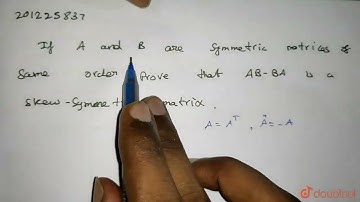 201225837
If A and B are Symmetric matrices of
Same order Prove that AB-BA is a
Skew-Symme matrix.
A = Aᵀ , = -A
doubtnut